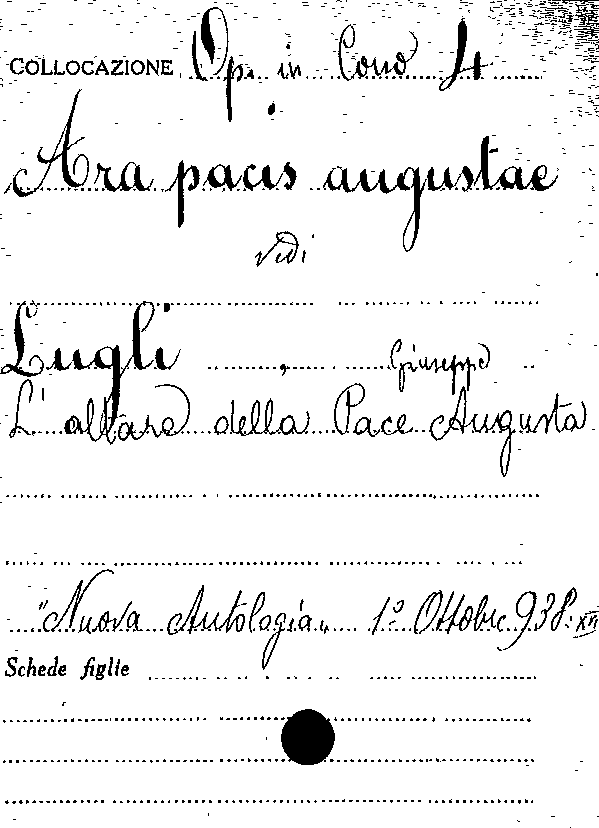 COLLOCAZIONE Op. in Cons 4
Ara pacis augustae
vedi
Lugli, Giuseppe
L'altare della Pace Augusta
"Nuova Antologia" 1º Ottobre 938.
Schede figlie